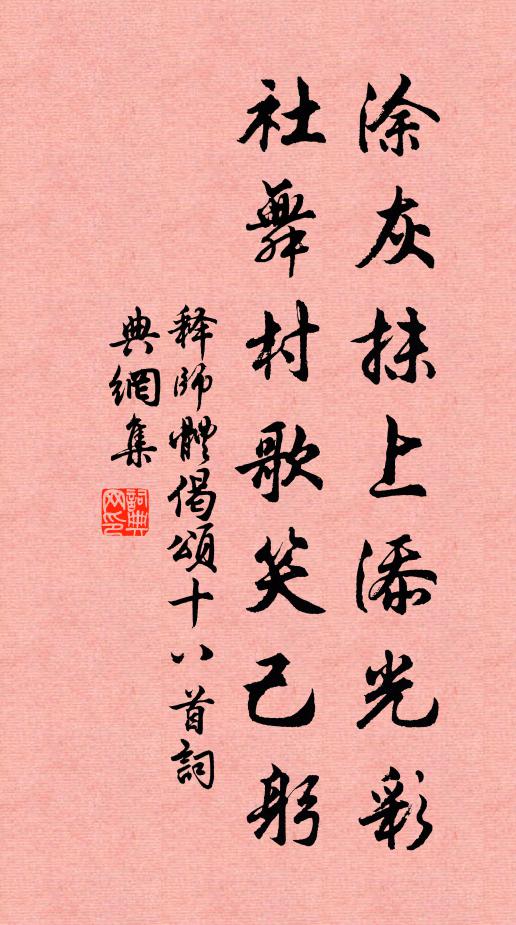 涂灰抹上添光彩
社舞村歌笑己躬
释师體偈頌十八首詞
典網集
詞典网印